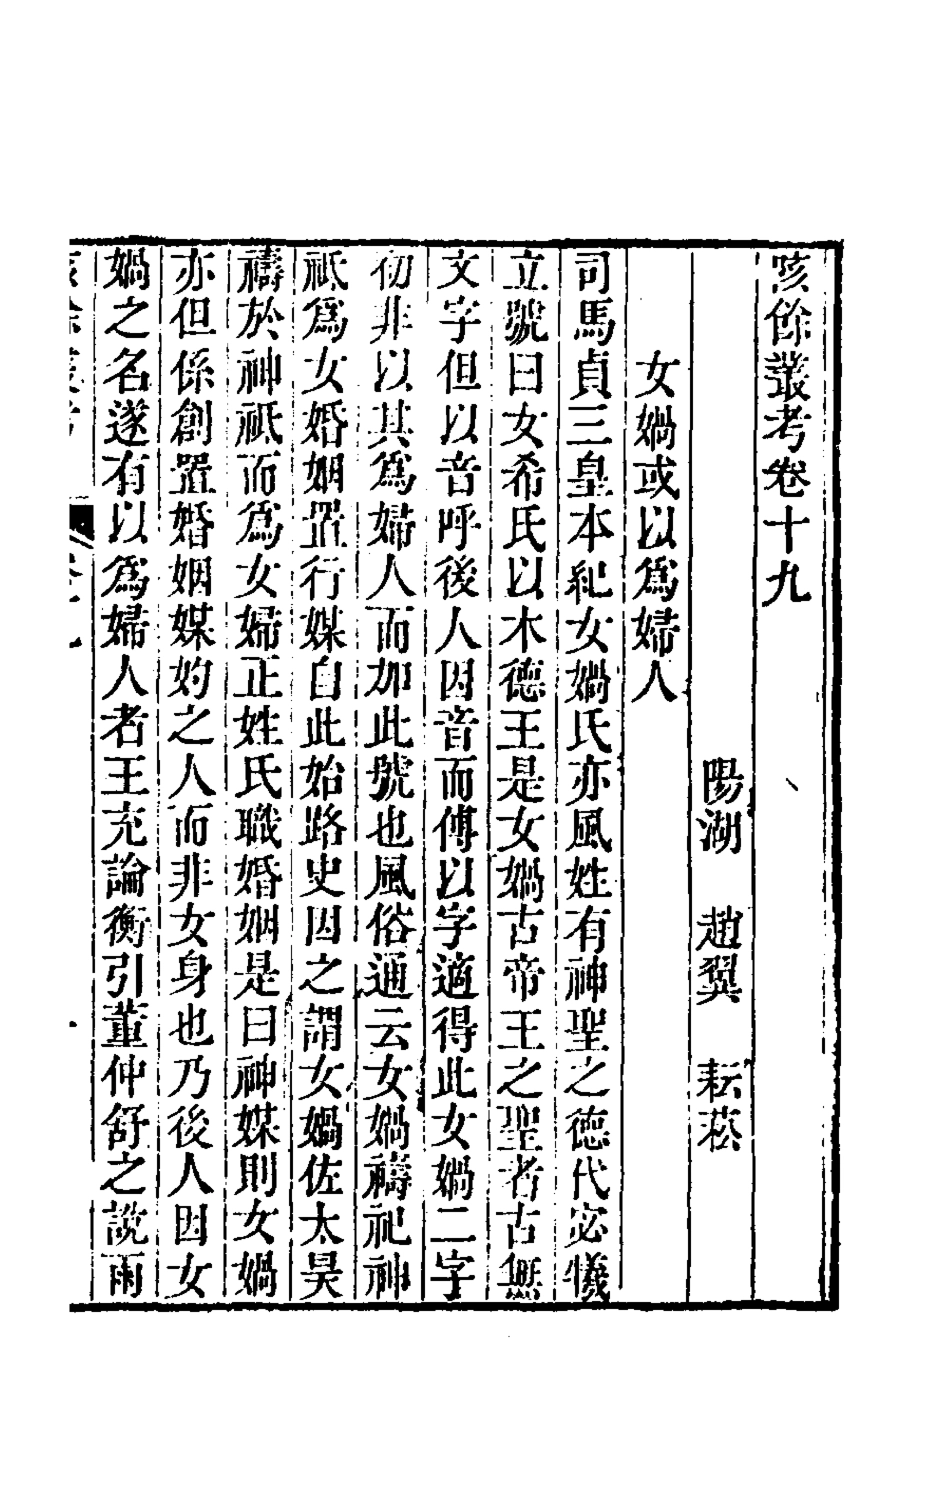 陔餘叢考卷十九
陽湖　趙翼　耘菘
女媧或以爲婦人
司馬貞三皇本紀女媧氏亦風姓有神聖之德代宓犧
立號曰女希氏以木德王是女媧古帝王之聖者古無
文字但以音呼後人因音而傅以字適得此女媧二字
初非以其爲婦人而加此號也風俗通云女媧禱祀神
祇爲女婚姻置行媒自此始路史因之謂女媧佐太昊
禱於神祇而爲女婦正姓氏職婚姻是曰神媒則女媧
亦但係創置婚姻媒妁之人而非女身也乃後人因女
媧之名遂有以爲婦人者王充論衡引董仲舒之說雨